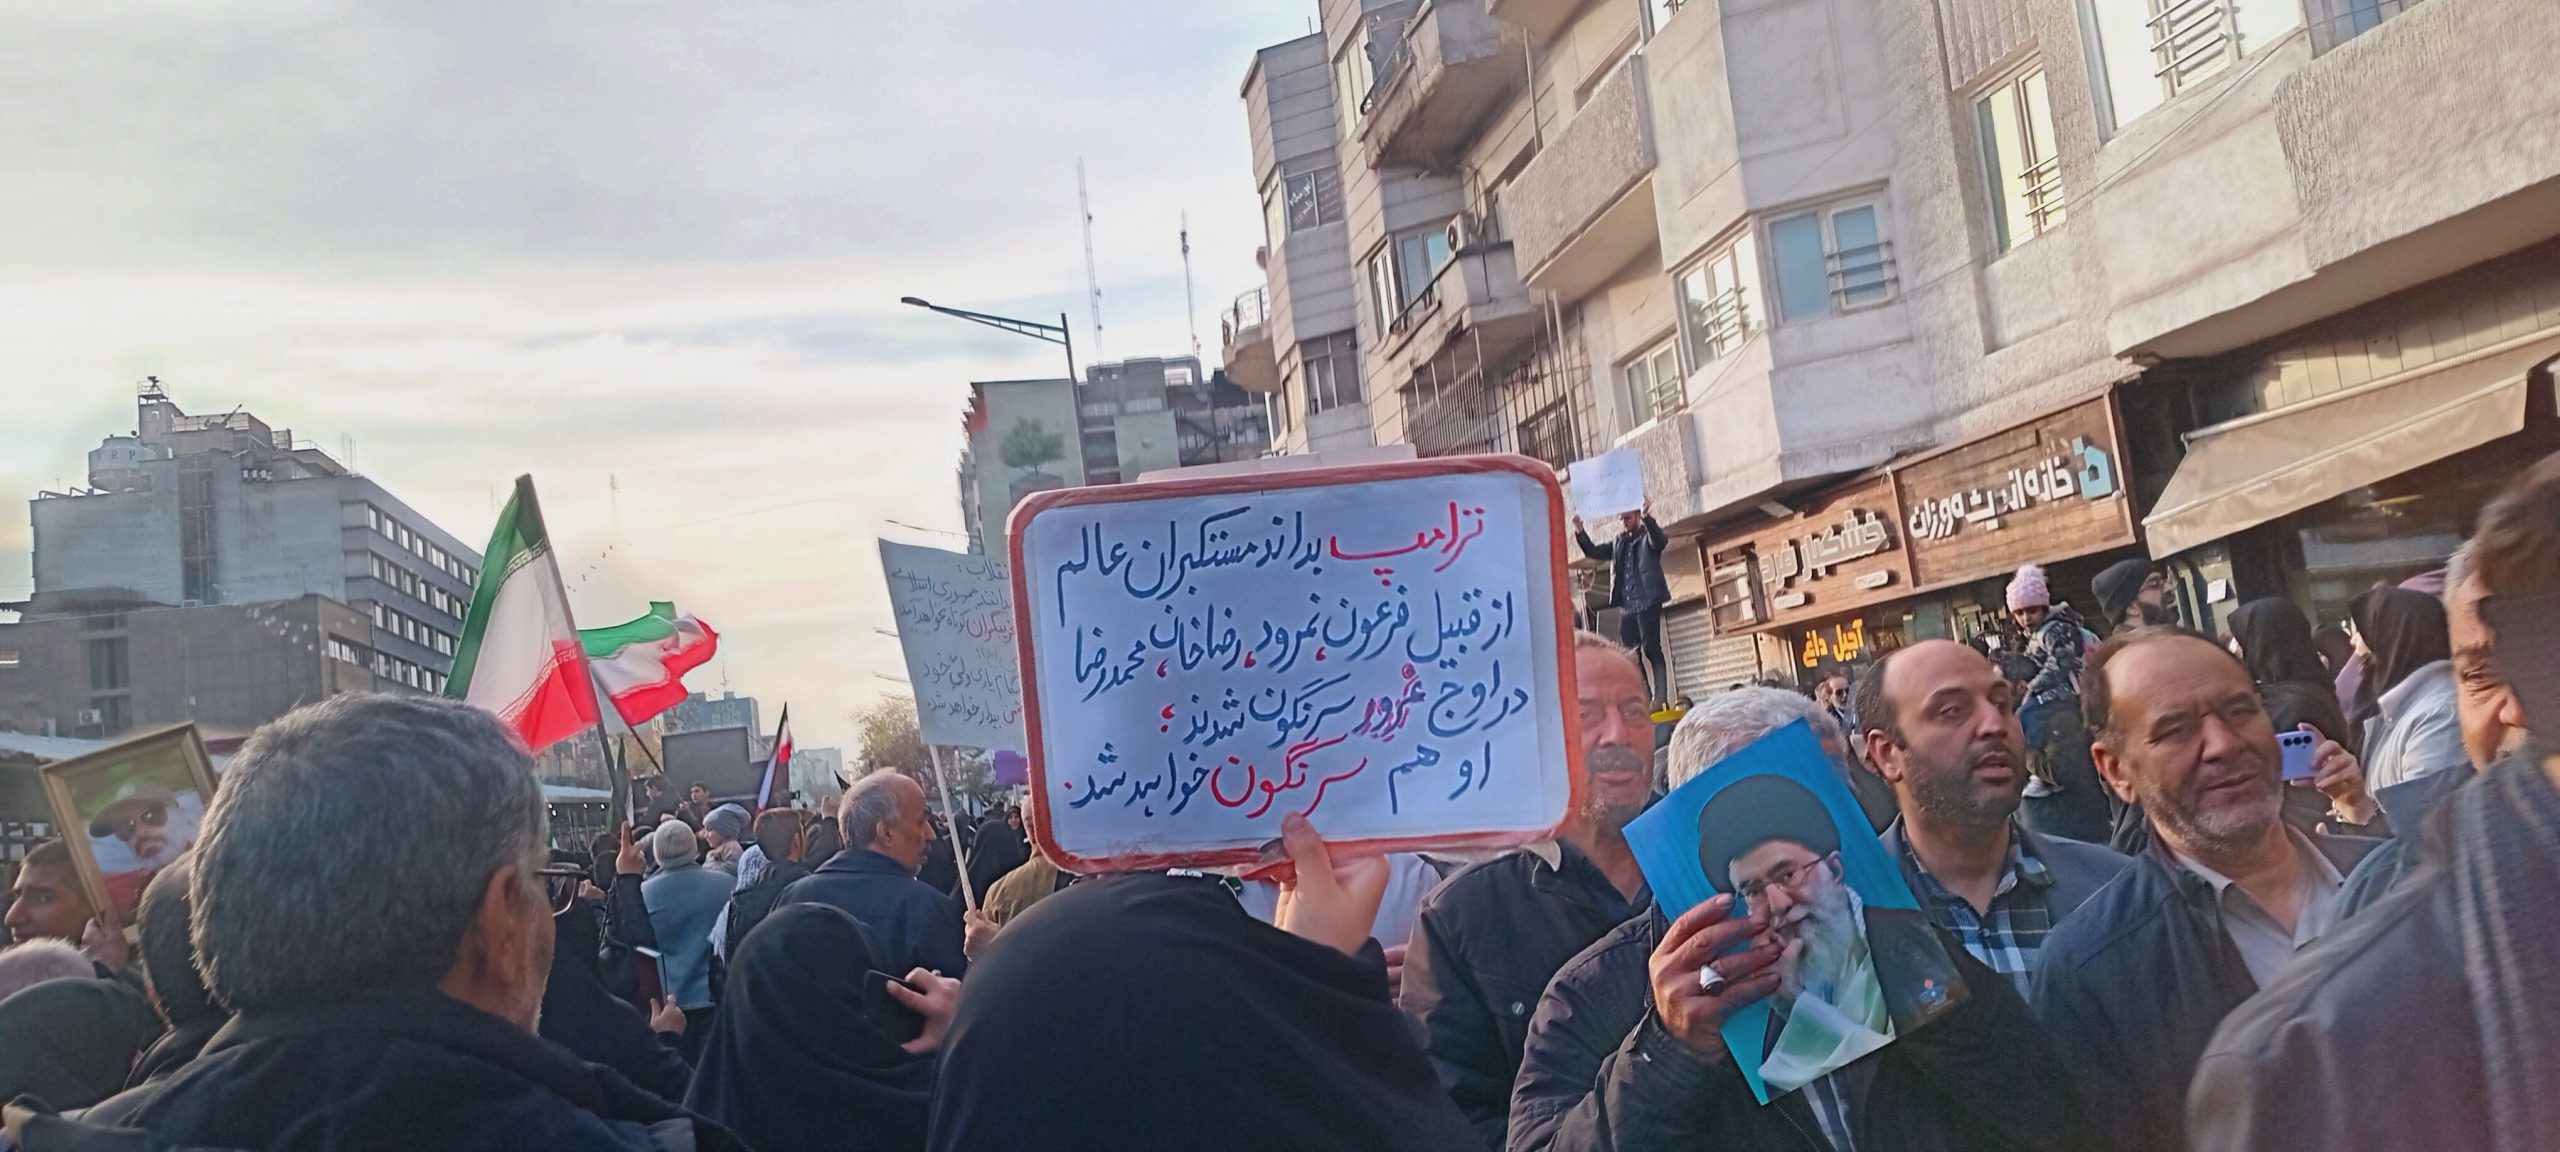 ترامپ بداند مستکبران عالم
از قبیل فرعون، نمرود، رضاخان، محمدرضا
در اوج غرور سرنگون شدند؛
او هم سرنگون خواهد شد.
انقلاب:
بدانند جمهوری اسلامی
کوتاه نخواهد آمد
یاری ولی خود
بیدار خواهد شد.
خانه اندیشه ورزان
خشکبار فرد
آجیل داغ
FRP